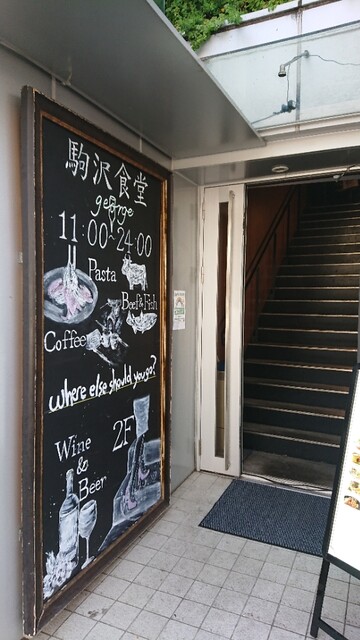 駒沢食堂
george
11:00-24:00
Pasta
Beef&Fish
Coffee
where else should you go?
2F
Wine
&
Beer